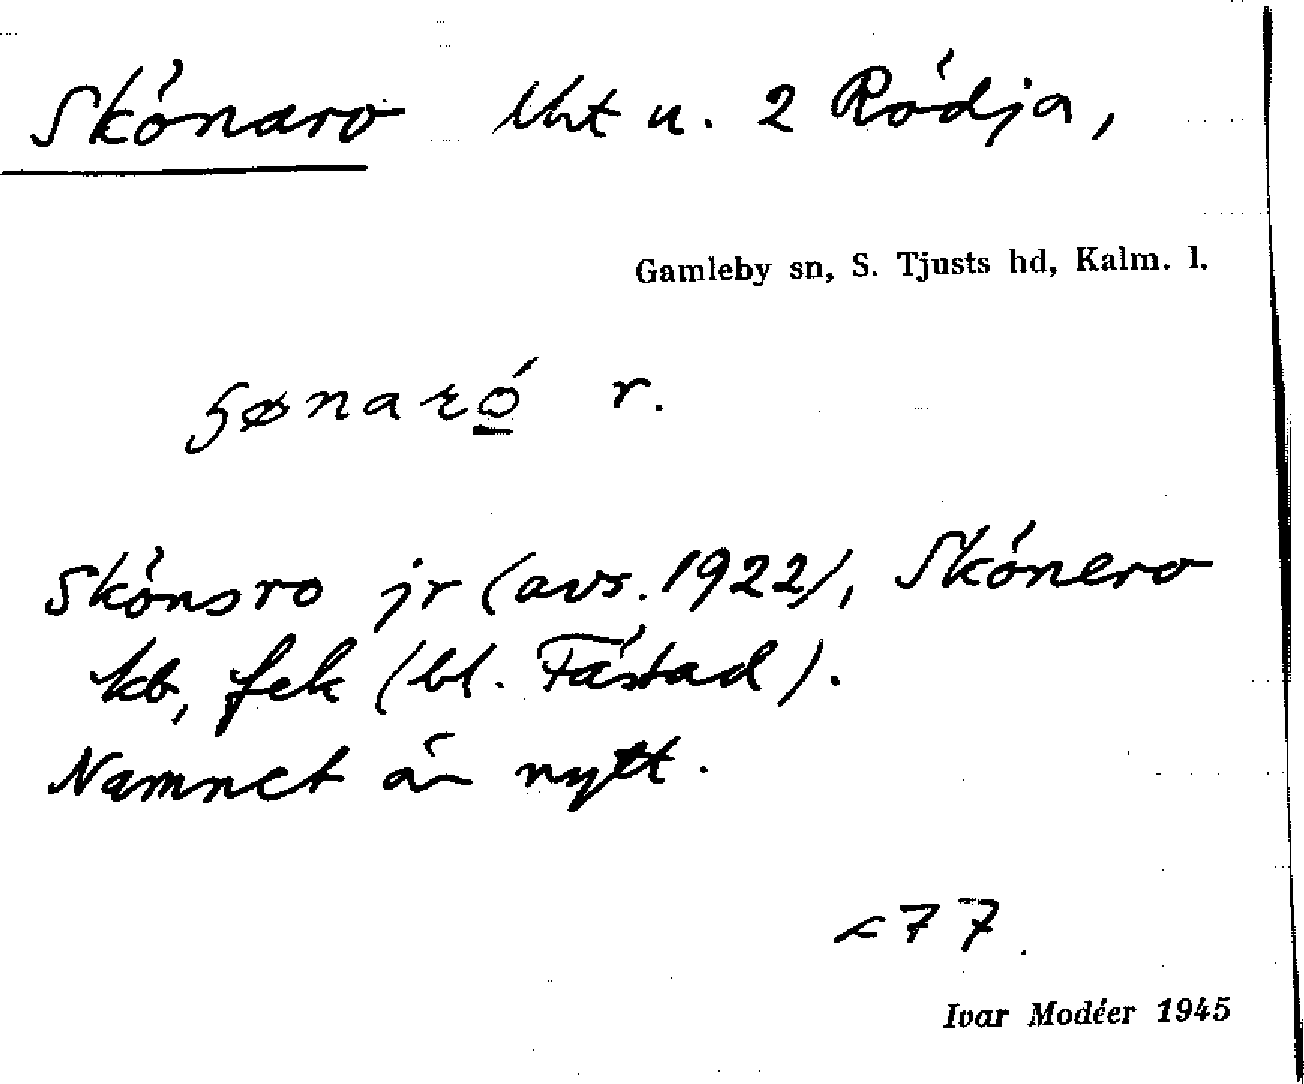 Skönaro lht u. 2 Rödja,
Gamleby sn, S. Tjusts hd, Kalm. l.
ʂønaró r.
Skönsro jr (avs. 1922), Skönero
kb, fek (bl. Fästad).
Namnet är nytt.
77.
Ivar Modéer 1945